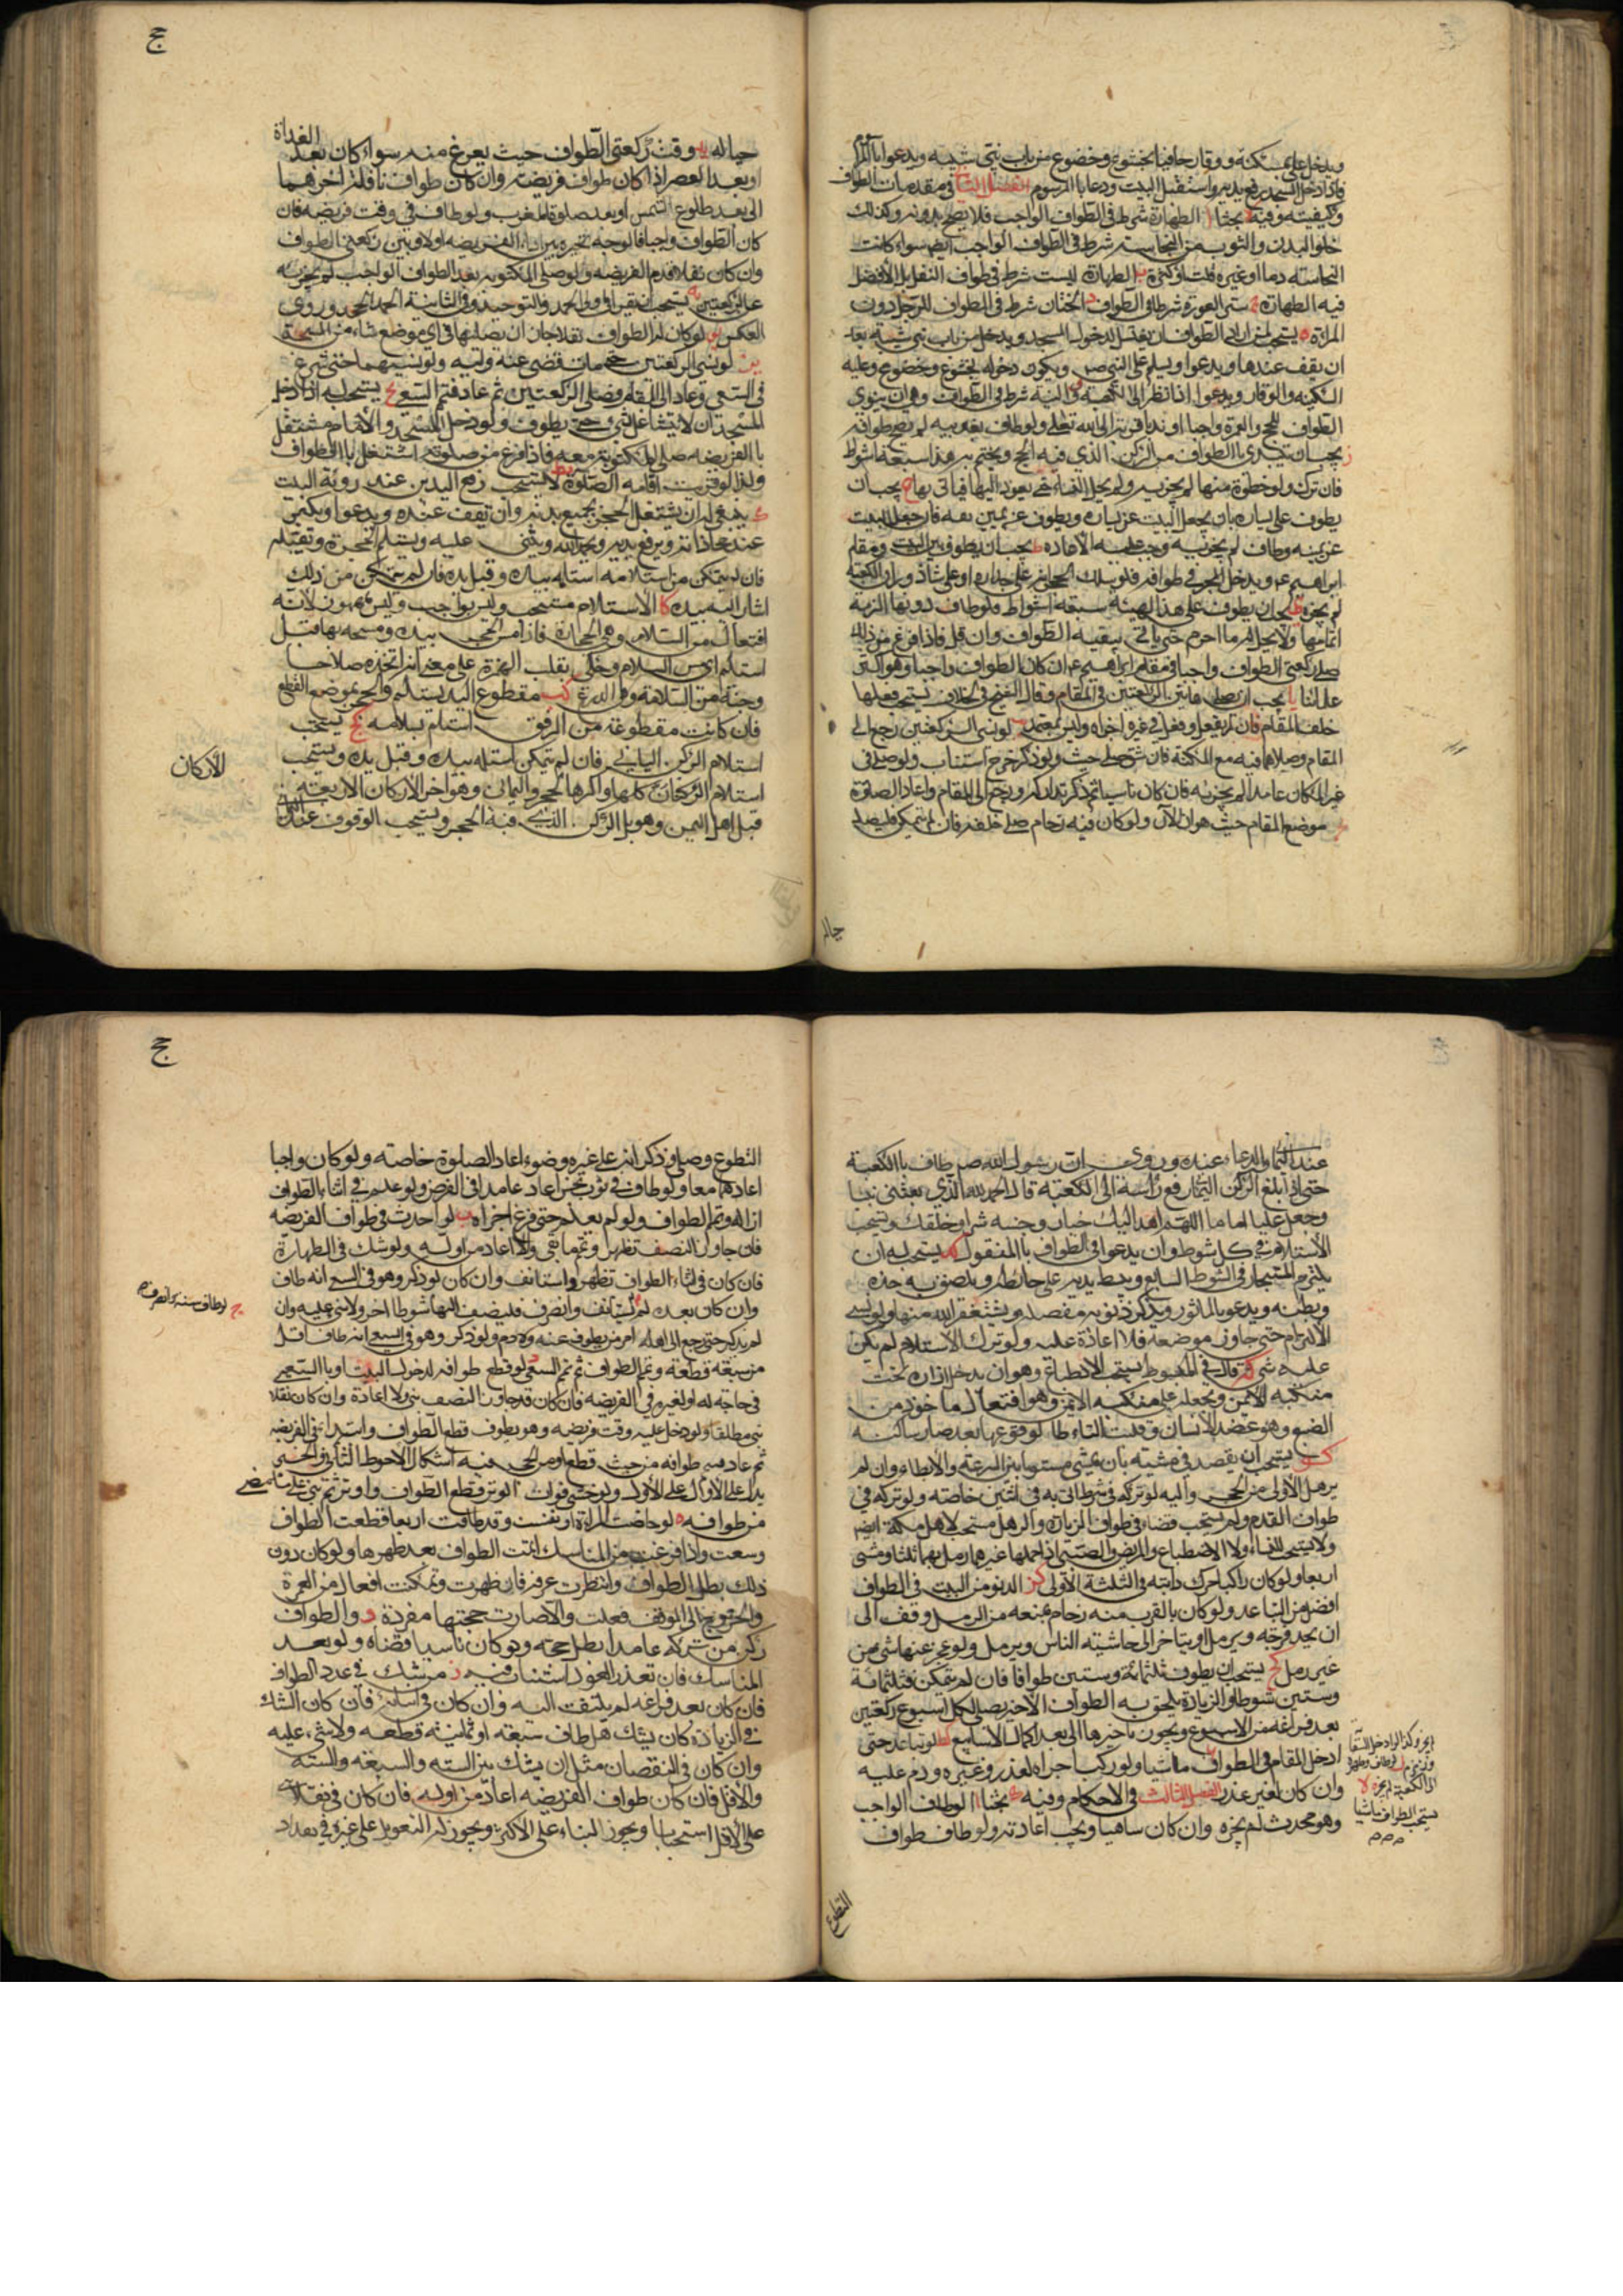 ويدخل على سكينة ووقار حافيا بخشوع وخضوع من باب بني شيبة ويدعوا بالمأثور
فاذا دخل المسجد رفع يديه واستقبل البيت ودعا بالمرسوم الفصل الثاني في مقدمات الطواف
وكيفيته وفيه بحثا ا الطهارة شرط في الطواف الواجب فلا يصح بدونه وكذلك
خلو البدن والثوب من النجاسة شرط في الطواف الواجب ايضا سواء كانت
النجاسة دما او غيره قلت او كثرت ب الطهارة ليست شرط في طواف النفل بل الافضل
فيه الطهارة ج ستر العورة شرط في الطواف د الختان شرط في الطواف للرجل دون
المراة ه يستحب لمن اراد الطواف ان يغتسل لدخول المسجد ويدخل من باب بني شيبة بعد
ان يقف عندها ويدعوا ويسلم على النبي ص ويكون دخوله بخشوع وخضوع وعليه
السكينة والوقار ويدعوا اذا نظر الى الكعبة و النية شرط في الطواف وهي ان ينوي
الطواف للحج او العمرة واجبا او ندبا قربة الى الله تعالى ولو طاف بغير نية لم يصح طوافه
ز يجب ان يبتدي بالطواف من الركن الذي فيه الحجر ويختم به هذا سبعة اشواط
فان ترك ولو خطوة منها لم يجزيه ولم يحل النساء حتى يعود اليها فياتي بها ح يجب ان
يطوف على يساره بان يجعل البيت عن يساره ويطوف عن يمين نفسه فان جعل البيت
عن يمينه وطاف لم يجزيه ووجب عليه الاعادة ط يجب ان يطوف بين البيت ومقام
ابراهيم ع ويدخل الحجر في طوافه فلو سلك الحجر او على جداره او على شاذروان الكعبة
لم يجزه ي يجب ان يطوف على هذا الهيئة سبعة اشواط فلو طاف دونها الزمه
اتمامها ولا يحل له ما احرم حتى ياتي ببقية الطواف وان قل فاذا فرغ من ذلك
صلى ركعتي الطواف واجبا في مقام ابراهيم ع ان كان الطواف واجبا وهو اكثر
علمائنا يا يجب ان يصلي هاتين الركعتين في المقام وقال الشيخ في الخلاف يستحب فعلهما
خلف المقام فان لم يفعل وفعل في غيره اجزاه وليس بمعتمد يب لو نسي الركعتين رجع الى
المقام وصلاهما فيه مع المكنة فان شق صلى حيث ذكر
غير المكان عامدا لم يجزئه فان كان ناسيا ثم ذكر تدارك ورجع الى المقام واعاد الصلوة
يج موضع المقام حيث هو الان ولو كان فيه زحام صلى خلفه فان لم يتمكن فليصل
حياله
ج
حياله يد وقت ركعتي الطواف حيث يفرغ منه سواء كان بعد الغداة
او بعد العصر اذا كان طواف فريضة وان كان طواف نافلة اخرهما
الى بعد طلوع الشمس او بعد صلوة المغرب ولو طاف في وقت فريضة فان
كان الطواف واجبا فالوجه تخيره بين اداء الفريضة اولا وبين ركعتي الطواف
وان كان نفلا قدم الفريضة ولو صلى المكتوبة بعد الطواف الواجب لم يجزيه
عن الركعتين يه يستحب ان يقرا في اولى الحمد والتوحيد وفي الثانية الحمد والجحد وروي
العكس يو لو كان الطواف نفلا جاز ان يصليهما في اي موضع شاء من المسجد
يز لو نسي الركعتين حتى مات قضى عنه وليه ولو نسيهما حتى شرع
في السعي وعاد الى المقام وصلى الركعتين ثم عاد فتمم السعي يح يستحب له اذا دخل
المسجد ان لا يتشاغل بشيء حتى يطوف ولو دخل المسجد والامام مشتغل
بالفريضة صلى المكتوبة معه فاذا فرغ من صلوته اشتغل بالطواف
ولذا لو قربت اقامة الصلوة يط لا يستحب رفع اليدين عند روية البيت
ك ينبغي له ان يستقبل الحجر بجميع بدنه وان يقف عنده ويدعوا ويكبر
عند محاذاته ويرفع يديه ويحمد الله ويثني عليه ويستلم الحجر ويقبله
فان لم يتمكن من استلامه استلمه بيده وقبل يده فان لم يتمكن من ذلك
اشار اليه بيده كا الاستلام مستحب وليس بواجب وليس بمهموز لانه
افتعال من السلام وهي الحجارة فاذا مس الحجر بيده ومسحه بها قيل
استلم اي مس السلام وحكي بقلب الهمزة على معنى انه اتخذه سلاحا
وجنة من السلامة وهي الدرع كب مقطوع اليد يستلم الحجر بموضع القطع
فان كانت مقطوعة من المرفق استلم بشماله كج يستحب
استلام الركن اليماني فان لم يتمكن استلمه بيده وقبل يده ويستحب
استلام الاركان كلها واكدها الحجر واليماني وهو اخر الاركان الاربعة
قبل اهل اليمن وهو يلي الركن الذي فيه الحجر ويستحب الوقوف عند
الاركان
عند اليماني والدعاء عنده وروي ان رسول الله ص طاف بالكعبة
حتى اذا بلغ الركن اليماني رفع راسه الى الكعبة قال الحمد لله الذي بعثني نبيا
وجعل عليا اماما اللهم اهد اليك خيار وجنبه شرار خلقك ويستحب
الاستلام في كل شوط وان يدعوا في الطواف بالمنقول كد يستحب له ان
يلتزم المستجار في الشوط السابع ويبسط يديه على حائطه ويلصق به خده
وبطنه ويدعو بالماثور ويذكر ذنوبه مفصلة ويستغفر الله منها ولو نسي
الالتزام حتى جاوز موضعه فلا اعادة عليه ولو ترك الاستلام لم يكن
عليه شيء كه قال في المبسوط يستحب الاضطباع وهو ان يدخل ازاره تحت
منكبه الايمن ويجعله على منكبه الايسر وهو افتعال ماخوذ من
الضبع وهو عضد الانسان وقلبت التاء طاء لوقوعها بعد ضاد ساكنة
كو يستحب ان يقصد في مشيه بان يمشي مستويا بين السرعة والابطاء وان لم
يرمل الاولى من الحجر واليه لو تركه في شوط اتى به في اثنين خاصة ولو تركه في
طواف القدوم لم يستحب قضاه في طواف الزيارة والرمل مستحب لاهل مكة ايضا
ولا يستحب للنساء ولا الاضطباع والمريض والصبي اذا حملها غيرهما رمل بهما ثلثا ومشى
اربعا ولو كان راكبا حرك دابته في الثلثة الاولى كز الدنو من البيت في الطواف
افضل من التباعد ولو كان بالقرب منه زحام يمنعه من الرمل وقف الى
ان يجد فرجة ويرمل او يتاخر الى حاشية الناس ويرمل ولو عجز عنها مشى من
غير رمل كح يستحب ان يطوف ثلثمائة وستين طوافا فان لم يتمكن فثلثمائة
وستين شوطا والزيادة يلحق به الطواف الاخير يصلي لكل اسبوع ركعتين
بعد فراغه من الاسبوع ويجوز تاخيرها الى بعد اكمال الاسابيع كط لو تباعد حتى
ادخل المقام في الطواف ماشيا ولو ركبا اجزاه لعذر وغيره ودم عليه
وان كان لغير عذر الفصل الثالث في الاحكام وفيه بحثا ا لو طاف الواجب
وهو محدث لم يجزه وان كان ساهيا ويجب اعادته ولو طاف طواف
التطوع
لم يجزه
يستحب الطواف ماشيا
ج
التطوع وصلى وذكر انه على غير وضوء اعاد الصلوة خاصة ولو كان واجبا
اعادهما معا ولو طاف في ثوب نجس اعاد عامدا في الفرض ولو علم في اثناء الطواف
ازاله وتمم الطواف ولو لم يعلم حتى فرغ اجزاه ب لو احدث في طواف الفريضة
فان جاوز النصف تطهر وتمم ما بقي والا اعاد من اوله ولو شك في الطهارة
فان كان في اثناء الطواف تطهر واستانف وان كان
وان كان بعده لم يستانف
لم يذكر حتى رجع الى اهله امر من يطوف عنه ولا دم ولو ذكر وهو في السعي انه طاف اقل
من سبعة قطعه وتمم الطواف ثم تمم السعي د لو قطع طوافه لدخول البيت او بالسعي
في حاجة له او لغيره في الفريضة فان كان قد جاوز النصف بنى والا اعادة وان كان نفلا
بنى مطلقا ولو دخل عليه وقت فريضة وهو يطوف قطع الطواف وابتدا بالفريضة
ثم عاد فتمم طوافه من حيث قطع او من الحجر فيه اشكال الاحوط الثاني والخبر
يدل على الاول ولو خشي فوات الوتر قطع الطواف واوتر ثم بنى على ما مضى
من طوافه ه لو حاضت المراة او نفست وقد طافت اربعا قطعت الطواف
وسعت واذا فرغت من المناسك اتمت الطواف بعد طهرها ولو كان دون
ذلك بطل الطواف وانتظرت عرفة فان طهرت وتمكنت افعال من العمرة
والخروج الى الموقف فعلت والا صارت حجتها مفردة و والطواف
ركن من تركه عامدا بطل حجه ولو كان ناسيا قضاه ولو بعد
المناسك فان تعذر العود استناب فيه ز من شك في عدد الطواف
فان كان بعد فراغه لم يلتفت اليه وان كان في اثنائه فان كان الشك
في الزيادة كان يشك هل طاف سبعة او ثمانية قطعه ولا شيء عليه
وان كان في النقصان مثل ان يشك بين الستة والسبعة والستة
والاقل فان كان طواف الفريضة اعاده من اوله فان كان في نفلا بنى
على الاقل استحبابا ويجوز البناء على الاكثر ويجوز له التعويل على غيره في تعداد